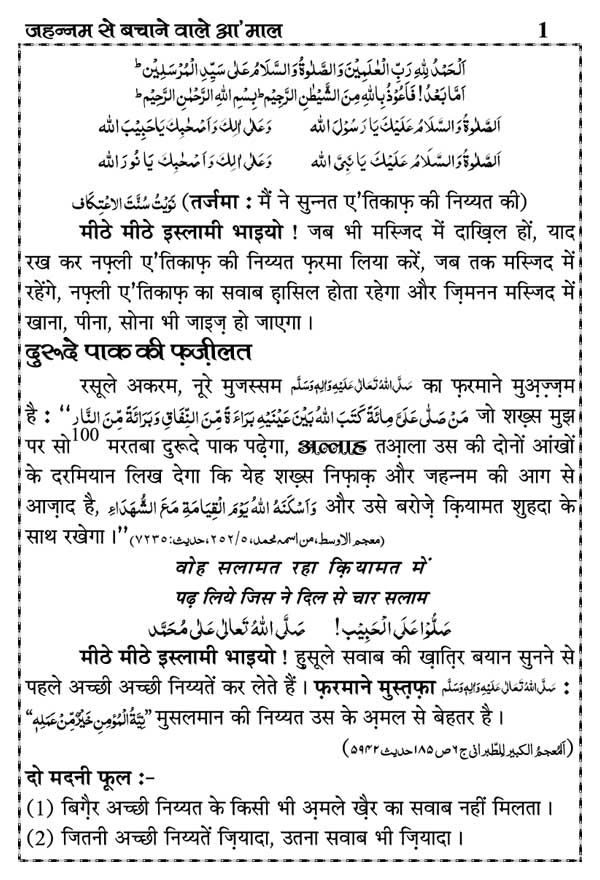 जहन्नम से बचाने वाले आ'माल 1
اَلْحَمْدُ لِلّٰهِ رَبِّ الْعٰلَمِيْنَ وَالصَّلٰوةُ وَالسَّلَامُ عَلٰى سَيِّدِ الْمُرْسَلِيْن ؕ
اَمَّا بَعْدُ! فَاَعُوْذُ بِاللّٰهِ مِنَ الشَّيْطٰنِ الرَّجِيْمِ ؕ بِسْمِ اللّٰهِ الرَّحْمٰنِ الرَّحِيْمِ ؕ
اَلصَّلٰوةُ وَالسَّلَامُ عَلَيْكَ يَا رَسُوْلَ اللّٰه وَعَلٰى اٰلِكَ وَاَصْحٰبِكَ يَا حَبِيْبَ اللّٰه
اَلصَّلٰوةُ وَالسَّلَامُ عَلَيْكَ يَا نَبِىَّ اللّٰه وَعَلٰى اٰلِكَ وَاَصْحٰبِكَ يَا نُوْرَ اللّٰه
نَوَيْتُ سُنَّتَ الْاِعْتِكَاف (तर्जमा : मैं ने सुन्नत ए'तिकाफ़ की निय्यत की)
मीठे मीठे इस्लामी भाइयो ! जब भी मस्जिद में दाख़िल हों, याद
रख कर नफ़्ली ए'तिकाफ़ की निय्यत फ़रमा लिया करें, जब तक मस्जिद में
रहेंगे, नफ़्ली ए'तिकाफ़ का सवाब हासिल होता रहेगा और ज़िमनन मस्जिद में
खाना, पीना, सोना भी जाइज़ हो जाएगा ।
दुरूदे पाक की फ़ज़ीलत
रसूले अकरम, नूरे मुजस्सम صَلَّى اللّٰهُ تَعَالٰى عَلَيْهِ وَاٰلِهٖ وَسَلَّم का फ़रमाने मुअ़ज़्ज़म
है : "مَنْ صَلّٰى عَلَىَّ مِائَةً كَتَبَ اللّٰهُ بَيْنَ عَيْنَيْهِ بَرَاءَةً مِّنَ النِّفَاقِ وَبَرَائَةً مِّنَ النَّار जो शख़्स मुझ
पर सो100 मरतबा दुरूदे पाक पढ़ेगा, अल्लाह तआ़ला उस की दोनों आंखों
के दरमियान लिख देगा कि येह शख़्स निफ़ाक़ और जहन्नम की आग से
आज़ाद है, وَاَسْكَنَهُ اللّٰهُ يَوْمَ الْقِيَامَةِ مَعَ الشُّهَدَاءِ और उसे बरोज़े क़ियामत शुहदा के
साथ रखेगा ।" (معجم الاوسط، من اسمه محمد، ۲۵۲/۵، حديث: ۷۲۳۵)
वोह सलामत रहा क़ियामत में
पढ़ लिये जिस ने दिल से चार सलाम
صَلُّوْا عَلَى الْحَبِيْب! صَلَّى اللّٰهُ تَعَالٰى عَلٰى مُحَمَّد
मीठे मीठे इस्लामी भाइयो ! हुसूले सवाब की ख़ातिर बयान सुनने से
पहले अच्छी अच्छी निय्यतें कर लेते हैं । फ़रमाने मुस्तफ़ा صَلَّى اللّٰهُ تَعَالٰى عَلَيْهِ وَاٰلِهٖ وَسَلَّم :
"نِيَّةُ الْمُؤْمِنِ خَيْرٌ مِّنْ عَمَلِهٖ" मुसलमान की निय्यत उस के अ़मल से बेहतर है ।
(اَلْمُعْجَمُ الْكَبِيْر لِلطَّبَرَانِى ج ۶ ص ۱۸۵ حديث ۵۹۴۲)
दो मदनी फूल :-
(1) बिग़ैर अच्छी निय्यत के किसी भी अ़मले ख़ैर का सवाब नहीं मिलता ।
(2) जितनी अच्छी निय्यतें ज़ियादा, उतना सवाब भी ज़ियादा ।